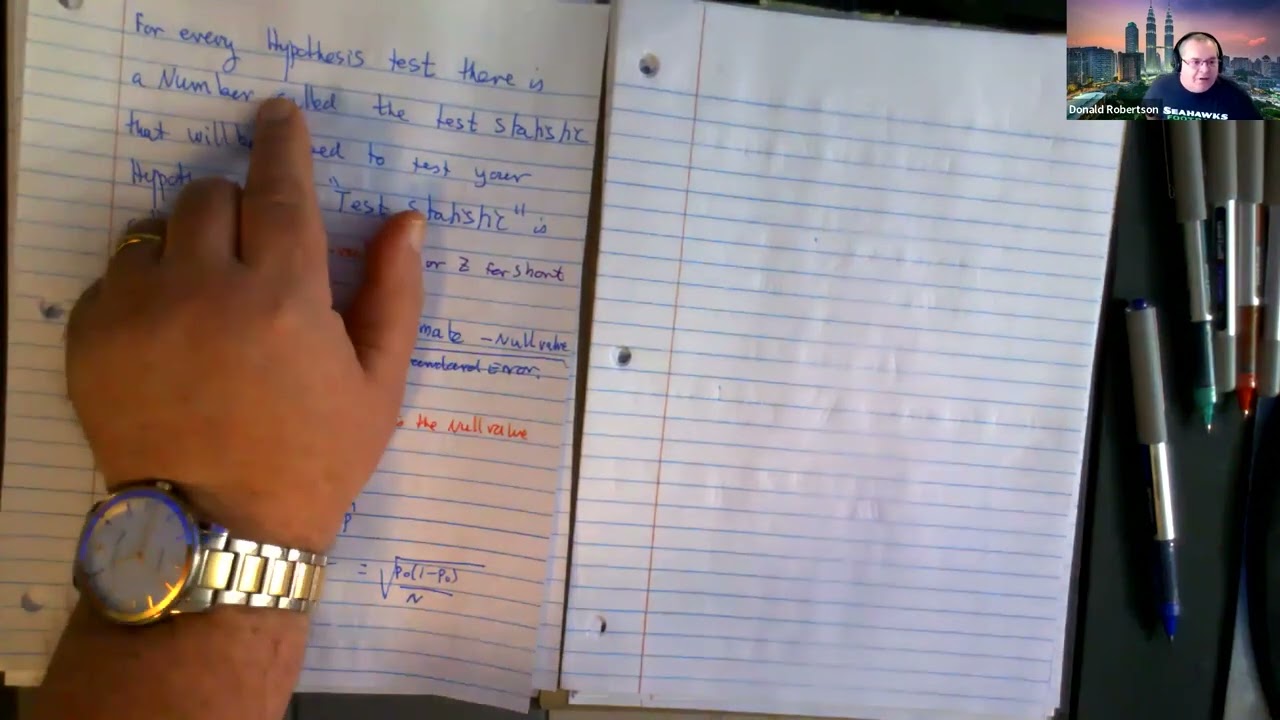 For every Hypothesis test there is
a Number called the test statistic
that will be used to test your
Hypoth "Test statistic" is
or Z for short
mate - Null value
Standard Error.
the Null value
p̂
= √p₀(1-p₀)
N
Donald Robertson
SEAHAWKS